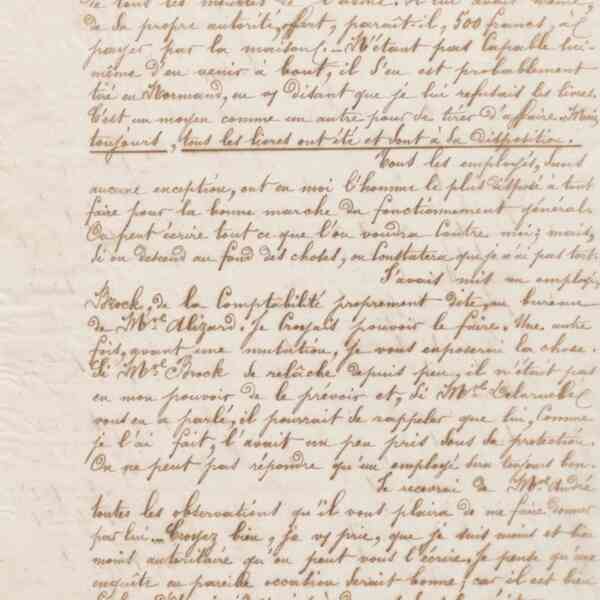 de sa propre autorité, offert, paraît-il, 500 francs, à
payer par la maison. — N'étant pas capable lui-
même d'en venir à bout, il s'en est probablement
tiré en Normand, en vs disant que je lui refusais les livres.
C'est un moyen comme un autre pour se tirer d'affaire. Mais,
toujours, tous les livres ont été et sont à sa disposition.
Tous les employés, sans
aucune exception, ont en moi l'homme le plus disposé à tout
faire pour la bonne marche du fonctionnement général.
On peut écrire tout ce que l'on voudra contre moi; mais,
si on descend au fond des choses, on constatera que je n'ai pas tort.
J'avais mis un employé,
Brock, de la Comptabilité proprement dite, au bureau
de Mr. Alizard. Je croyais pouvoir le faire. Une autre
fois, avant une mutation, je vous exposerai la chose.
Si Mr. Brock se relâche depuis peu, il n'était pas
en mon pouvoir de le prévoir et, si Mr.
vous en a parlé, il pourrait se rappeler que lui, comme
je l'ai fait, l'avait un peu pris sous sa protection.
On ne peut pas répondre qu'un employé sera toujours bon.
Je recevrai de Mr. André
toutes les observations qu'il vous plaira de me faire donner
par lui. — Croyez bien, je vs prie, que je suis moins et bien
moins autoritaire qu'on peut vous l'écrire. Je pense qu'une
enquête en pareille occasion serait bonne, car il est bien